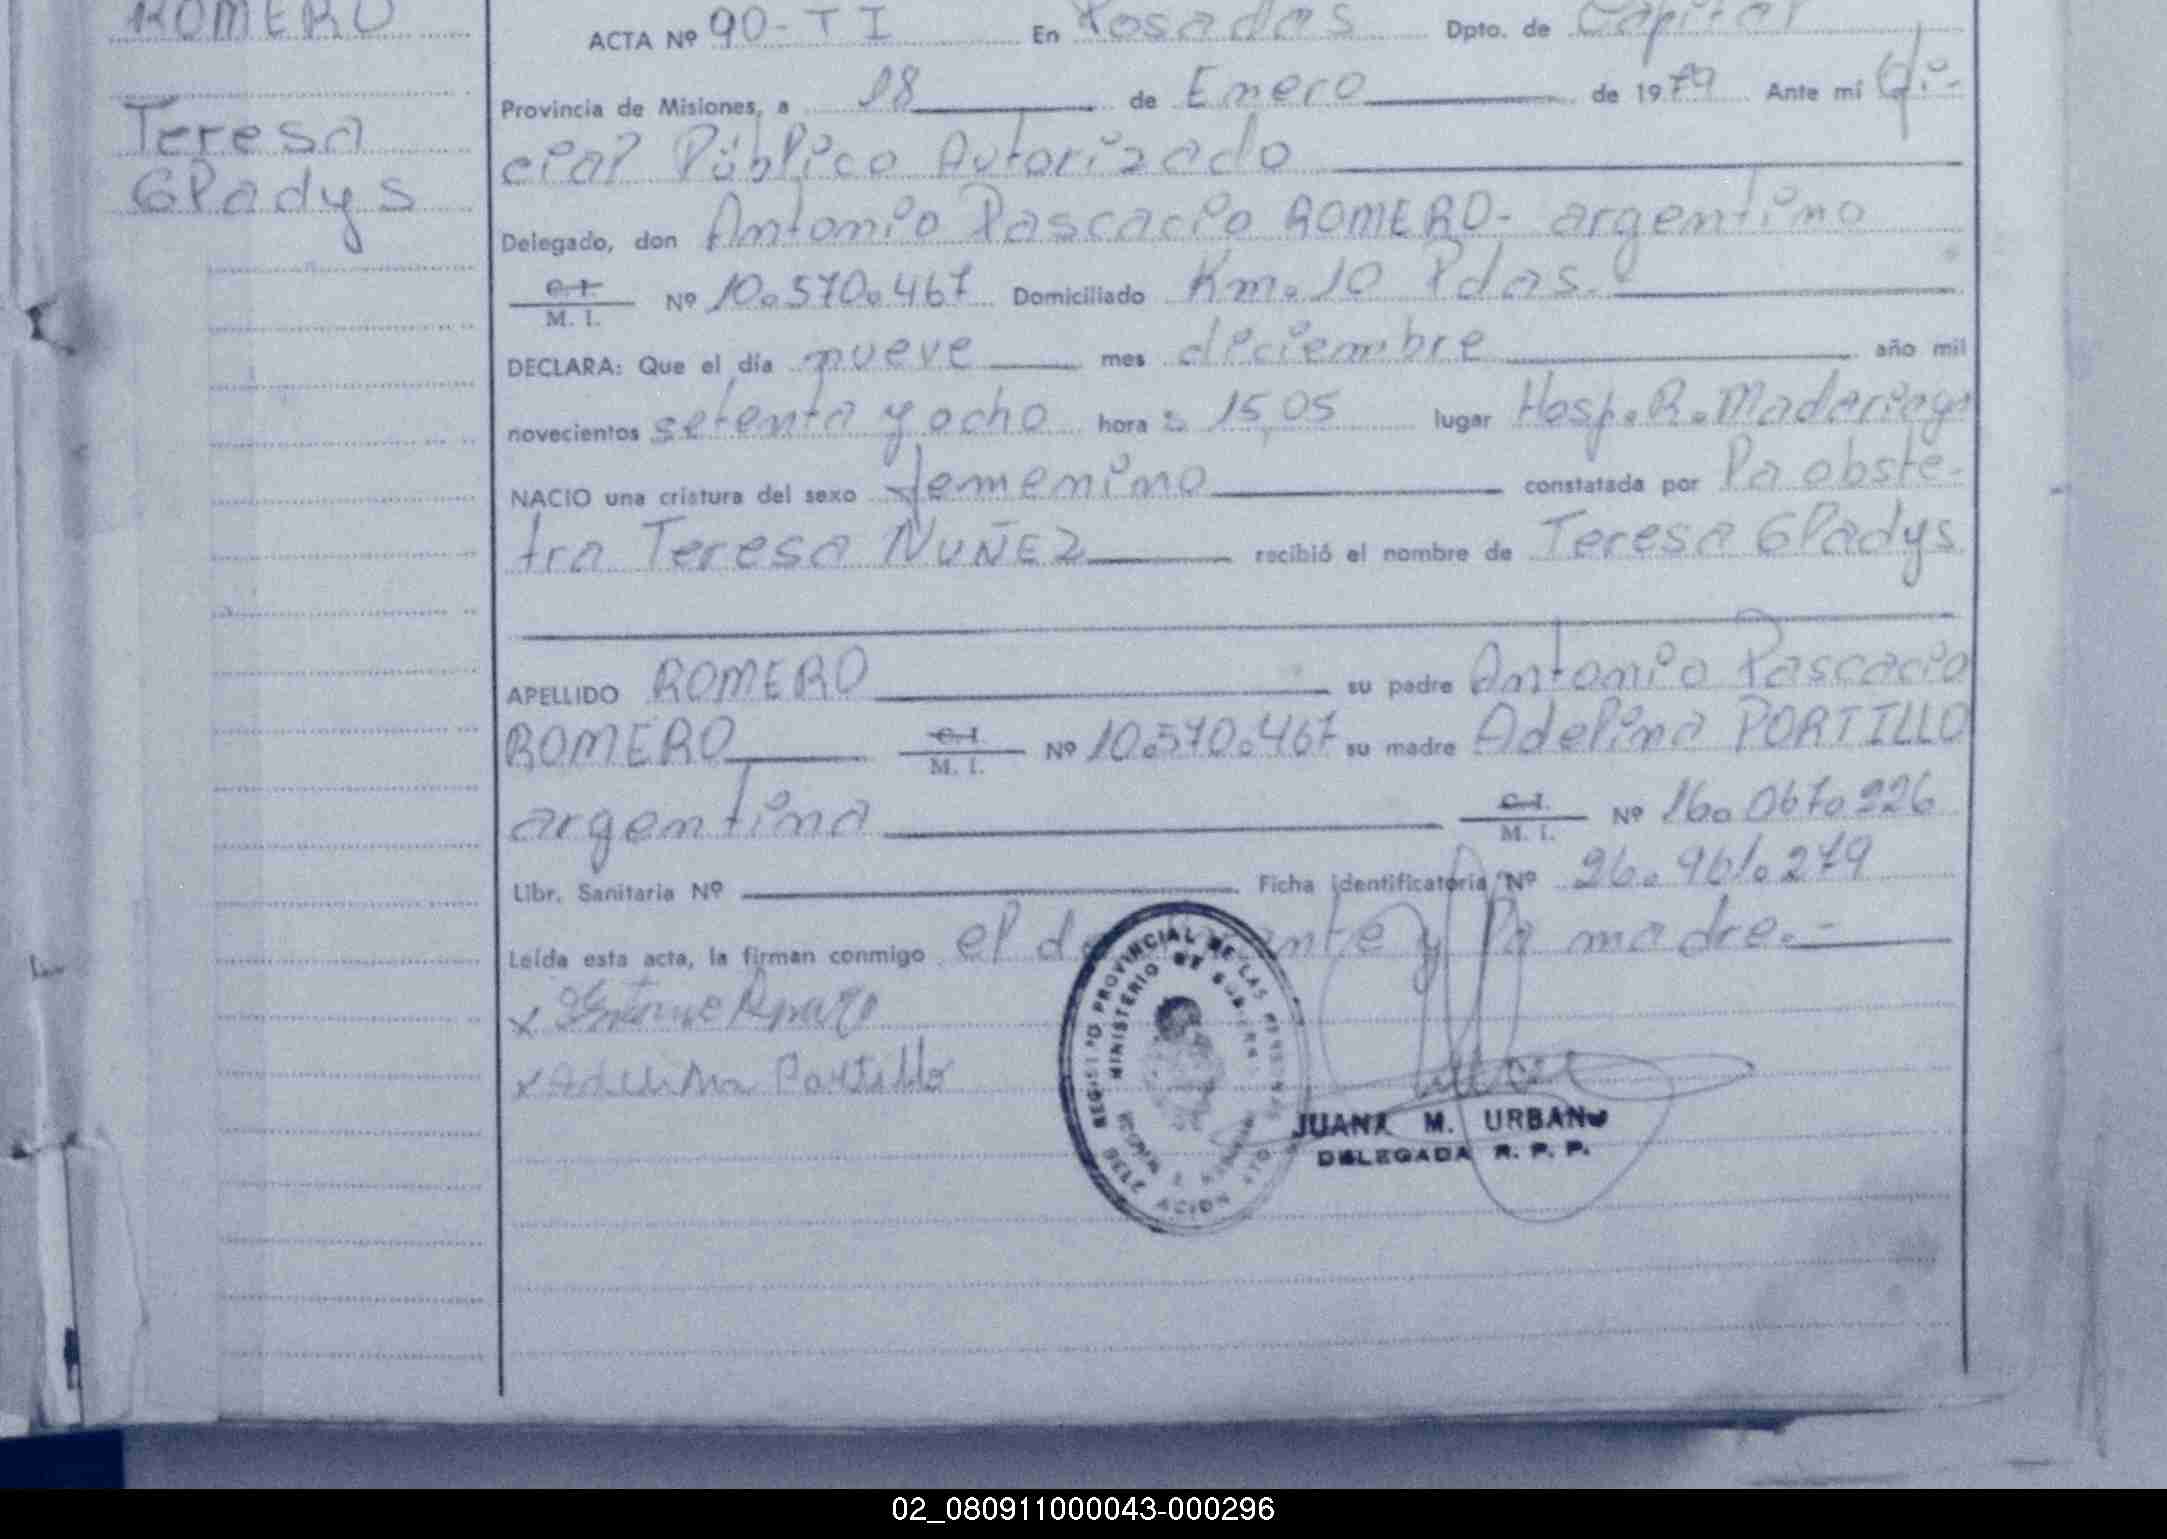 ROMERO
Teresa
Gladys
ACTA Nº 90-T I En Posadas Dpto. de Capital
Provincia de Misiones, a 18 de Enero de 1979 Ante mí Ofi-
cial Público Autorizado
Delegado, don Antonio Pascacio ROMERO- argentino
C.I. M. I. Nº 10.570.467 Domiciliado Km. 10 Pdas.
DECLARA: Que el día nueve mes diciembre año mil
novecientos setenta y ocho hora s 15,05 lugar Hosp. R. Madariaga
NACIO una criatura del sexo femenino constatada por la obste-
tra Teresa NUÑEZ recibió el nombre de Teresa Gladys
APELLIDO ROMERO su padre Antonio Pascacio
ROMERO C.I. M. I. Nº 10.570.467 su madre Adelina PORTILLO
argentina C.I. M. I. Nº 16.067.226
Libr. Sanitaria Nº Ficha identificatoria Nº 26.961.279
Leída esta acta, la firman conmigo el y la madre.-
x Antonio Romero
x Adelina Portillo
REGISTRO PROVINCIAL DE LAS PERSONAS
MINISTERIO DE GOBIERNO
DELEGACION
JUANA M. URBANO
DELEGADA R. P. P.
02_080911000043-000296